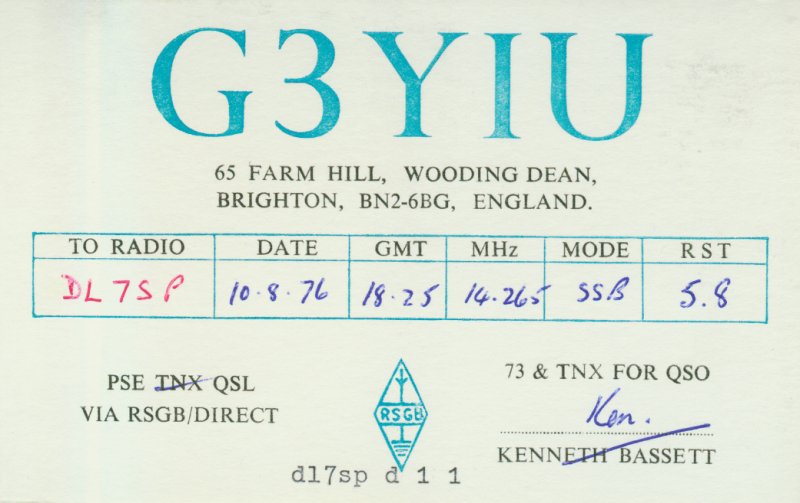 G3YIU
65 FARM HILL, WOODING DEAN,
BRIGHTON, BN2-6BG, ENGLAND.
TO RADIO DATE GMT MHz MODE RST
DL7SP 10.8.76 18.25 14.265 SSB 5.8
PSE TNX QSL
VIA RSGB/DIRECT
RSGB
73 & TNX FOR QSO
Ken.
KENNETH BASSETT
dl7sp d 1 1